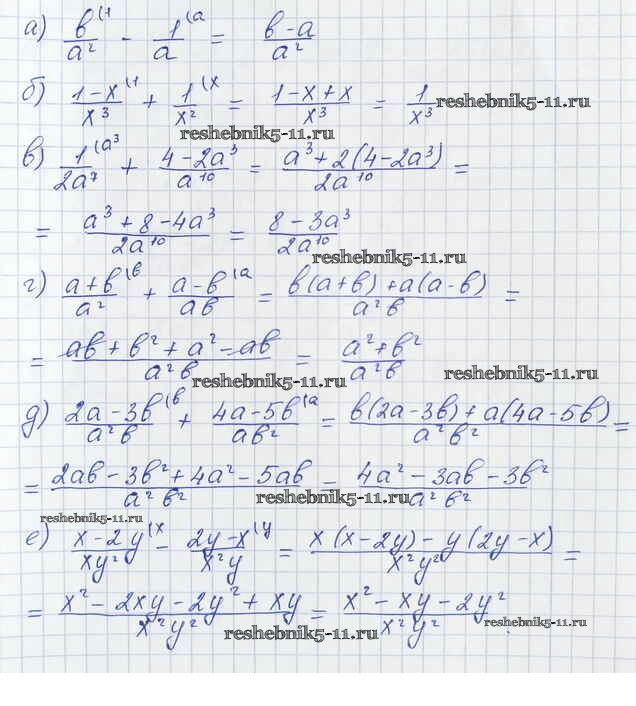 а) b⁽¹/a² - 1⁽ᵃ/a = b-a/a²
б) 1-x⁽¹/x³ + 1⁽ˣ/x² = 1-x+x/x³ = 1/x³ reshebnik5-11.ru
reshebnik5-11.ru
в) 1⁽ᵃ³/2a⁷ + 4-2a³/a¹⁰ = a³+2(4-2a³)/2a¹⁰ =
= a³+8-4a³/2a¹⁰ = 8-3a³/2a¹⁰
reshebnik5-11.ru
г) a+b⁽ᵇ/a² + a-b⁽ᵃ/ab = b(a+b)+a(a-b)/a²b =
= ab+b²+a²-ab/a²b = a²+b²/a²b
reshebnik5-11.ru reshebnik5-11.ru
д) 2a-3b⁽ᵇ/a²b + 4a-5b⁽ᵃ/ab² = b(2a-3b)+a(4a-5b)/a²b² =
= 2ab-3b²+4a²-5ab/a²b² = 4a²-3ab-3b²/a²b²
reshebnik5-11.ru
reshebnik5-11.ru
е) x-2y⁽ˣ/xy² - 2y-x⁽ʸ/x²y = x(x-2y)-y(2y-x)/x²y² =
= x²-2xy-2y²+xy/x²y² = x²-xy-2y²/x²y²
reshebnik5-11.ru reshebnik5-11.ru